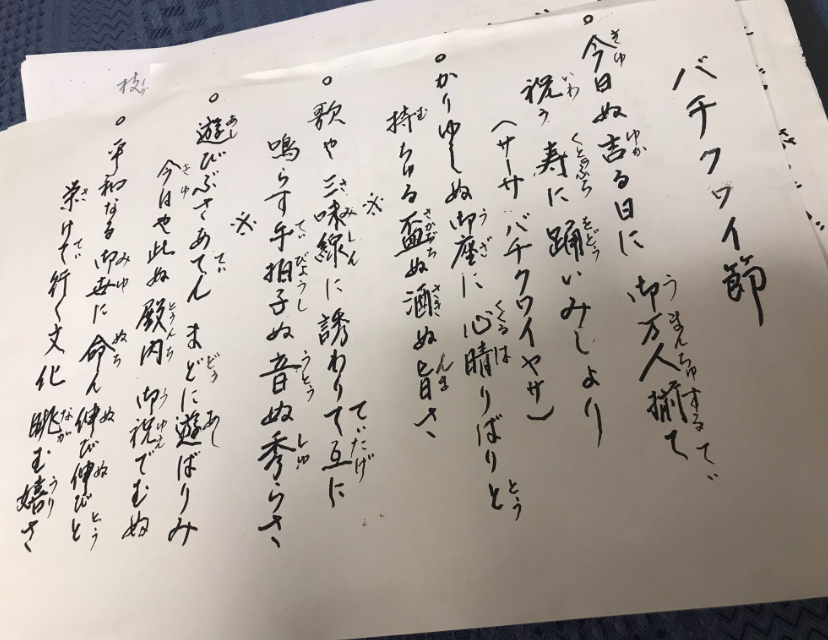 バチクワイ節
今日ぬ吉る日に 御万人揃て
祝う 寿に踊いみしより
(サーサ バチクワイヤサ)
かりゆしぬ御座に 心晴りばりと
持ちゅる盃ぬ酒ぬ旨さ
※
歌や三味線に誘わりて互に
鳴らす手拍子ぬ音ぬ秀らさ
※
遊びぶさあてん まどに遊ばりみ
今日や此ぬ殿内 御祝でむぬ
平和なる御世に 命ん伸び伸びと
栄けて行く文化 眺む嬉さ
枝